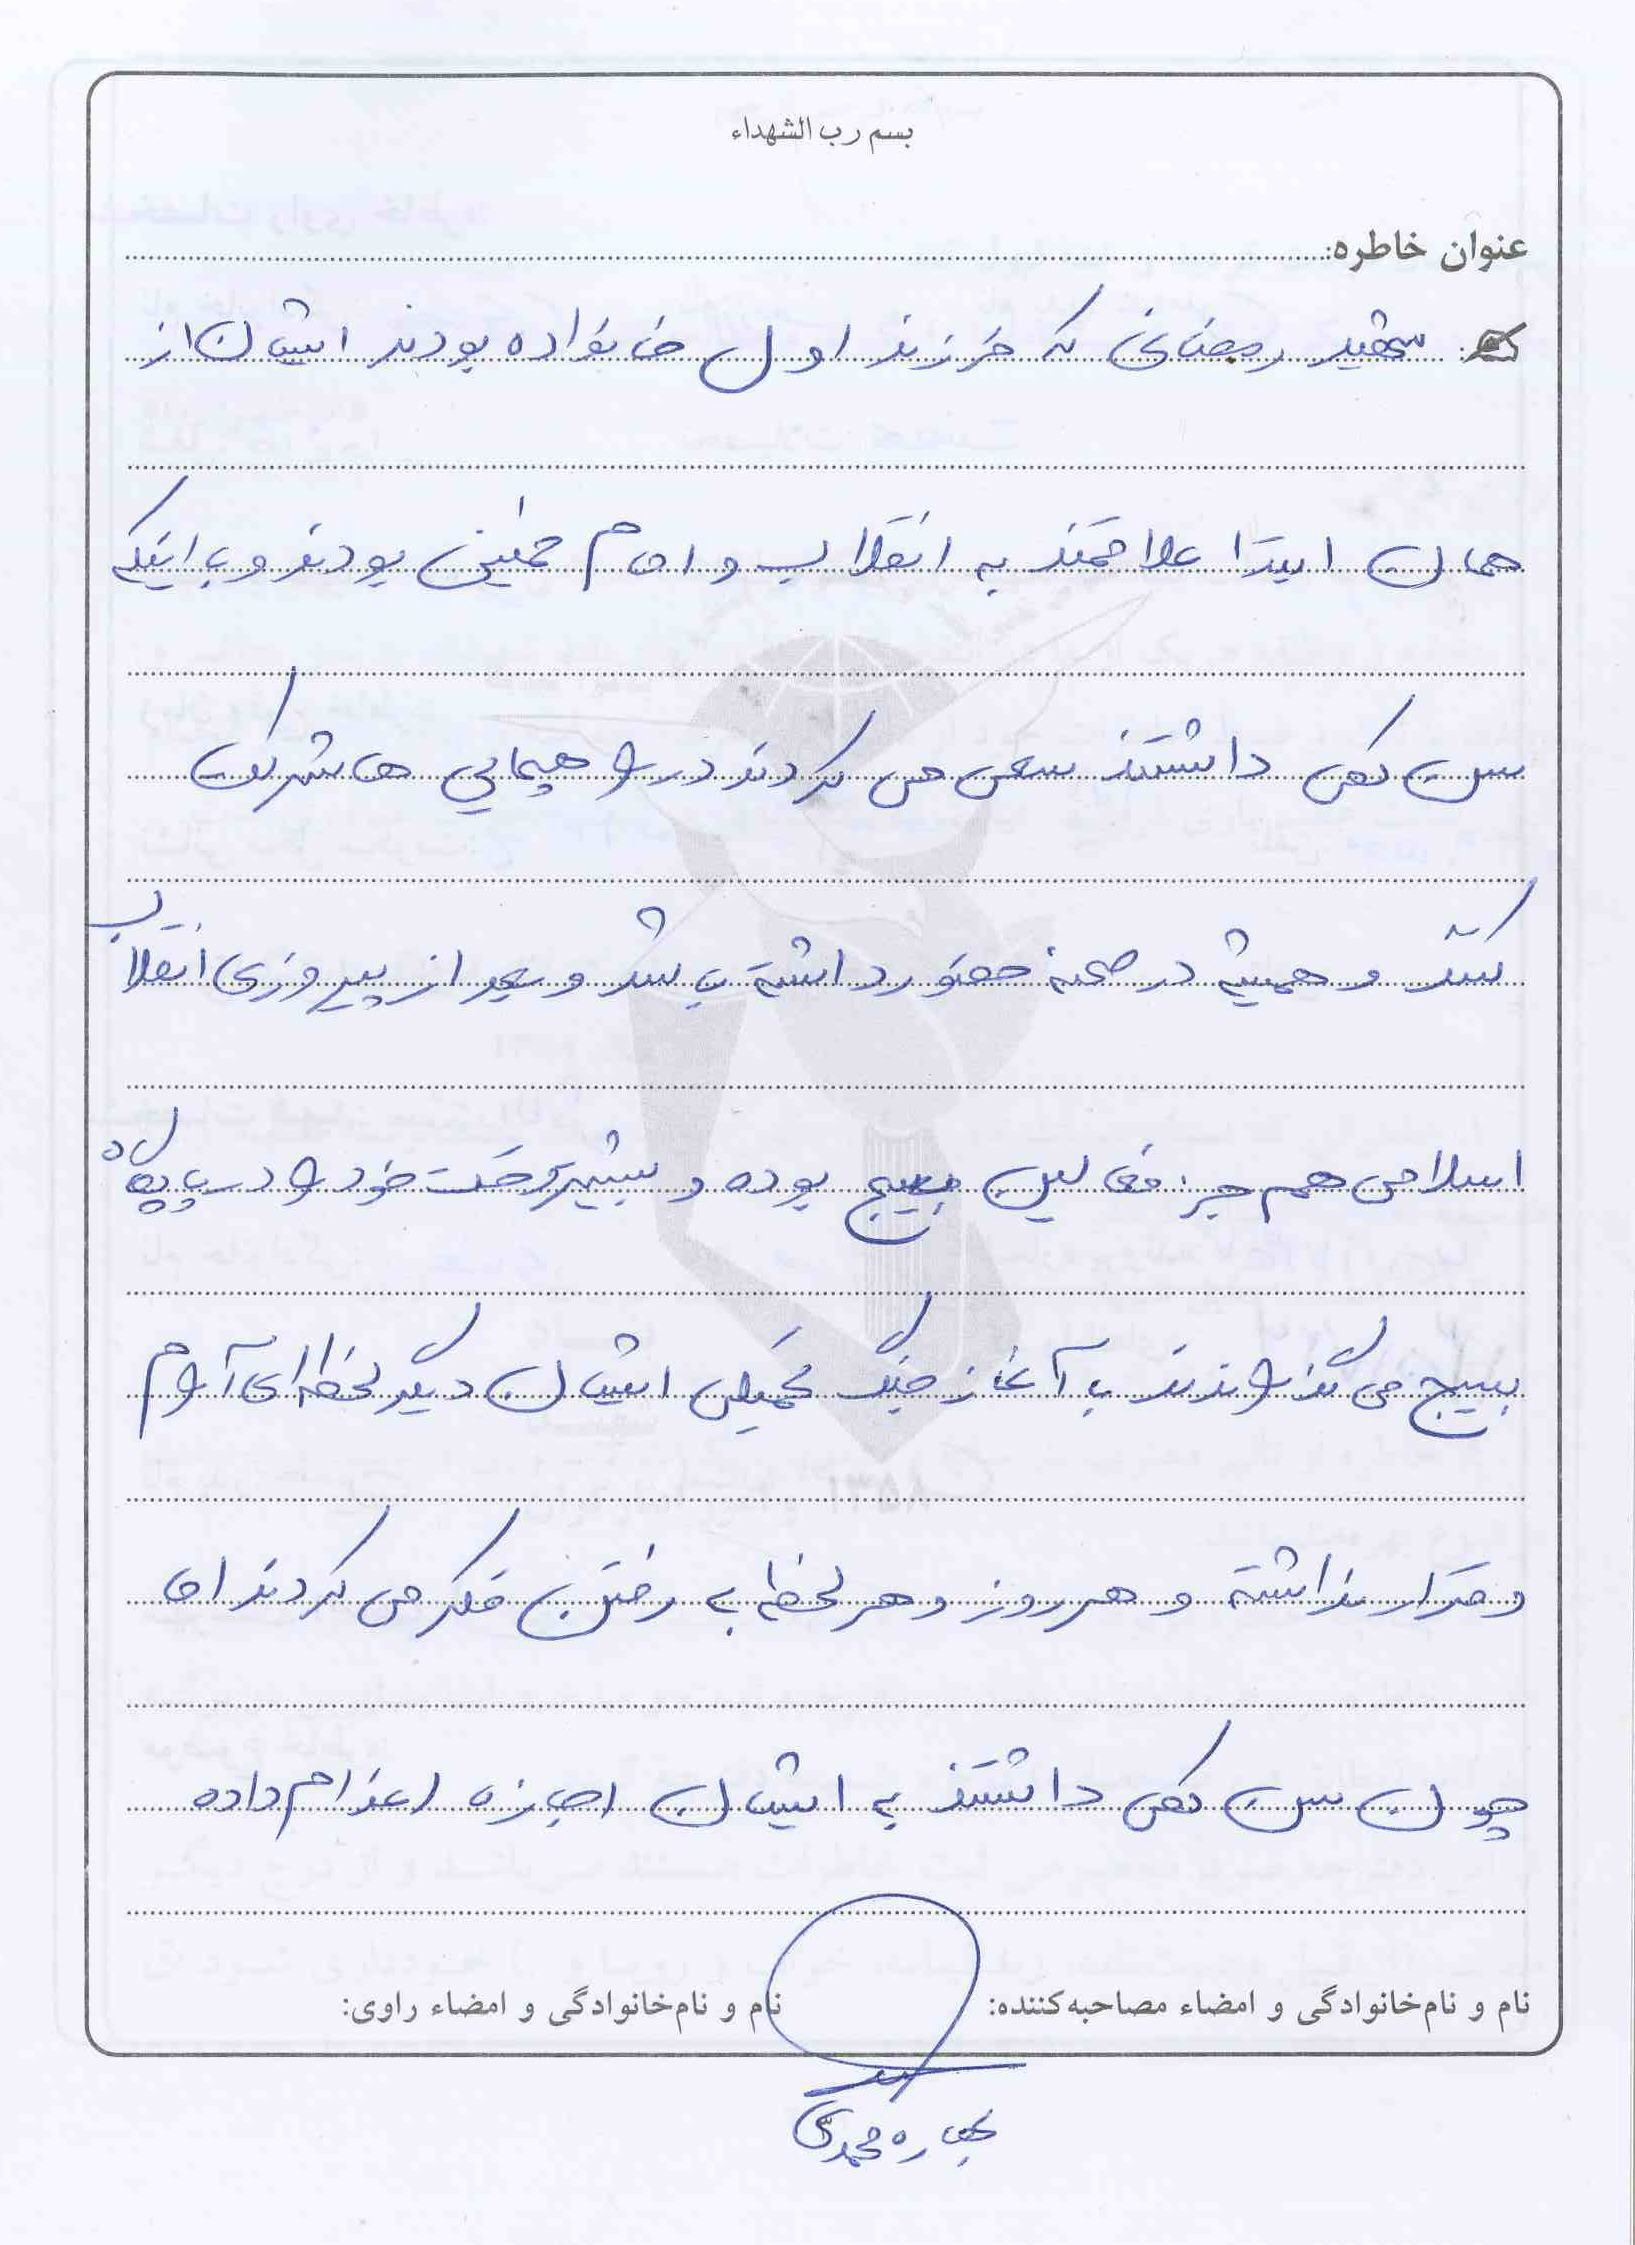 بسم رب الشهداء
عنوان خاطره:
شهید رمضانی که فرزند اول خانواده بودند ایشان از
همان ابتدا علاقمند به انقلاب و امام خمینی بودند و با اینکه
سن کمی داشتند سعی می کردند در راهپیمایی ها شرکت
کنند و همیشه در صحنه حضور داشته باشد و بعد از پیروزی انقلاب
اسلامی هم جزء فعالین بسیج بوده و بیشتر وقت خود را در پایگاه
بسیج می گذراندند با آغاز جنگ تحمیلی ایشان دیگر لحظه ای آرام
و قرار نداشته و هر روز و هر لحظه به رفتن فکر می کردند اما
چون سن کمی داشتند به ایشان اجازه اعزام داده
نام و نام‌خانوادگی و امضاء مصاحبه‌کننده:
نام و نام‌خانوادگی و امضاء راوی:
بهاره محمدی